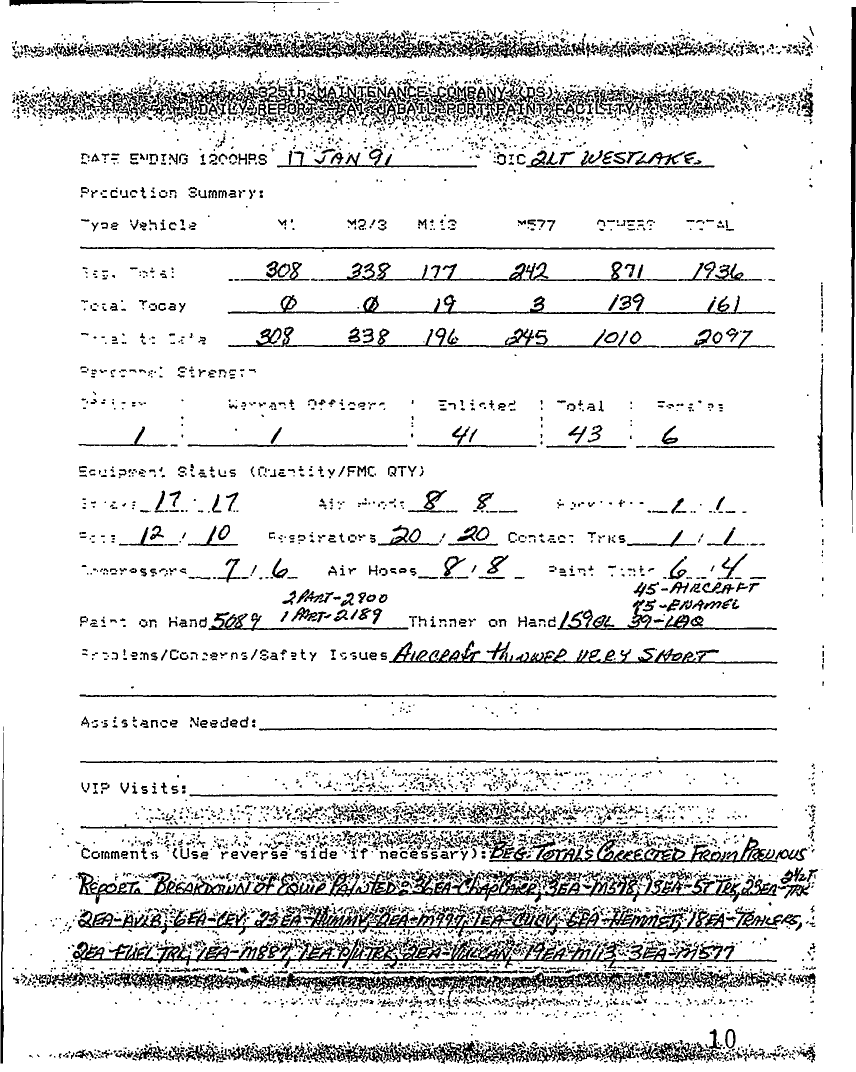 325th MAINTENANCE COMPANY (DS)
DAILY REPORT AL JABAIL PORT PAINT FACILITY
DATE ENDING 1200HRS 17 JAN 91 OIC 2LT WESTLAKE
Production Summary:
Type Vehicle M1 M2/3 M113 M577 OTHERS TOTAL
Beg. Total 308 338 177 242 871 1936
Total Today Ø Ø 19 3 139 161
Total to Date 308 338 196 245 1010 2097
Personnel Strength
Officer Warrant Officers Enlisted Total Females
1 1 41 43 6
Equipment Status (Quantity/FMC QTY)
17 17 Air Hoods 8 8 1 / 1
Pots 12 / 10 Respirators 20 / 20 Contact Trks 1 / 1
Compressors 7 / 6 Air Hoses 8 / 8 Paint Tents 6 / 4
2 PART-2900 45-AIRCRAFT
75-ENAMEL
Paint on Hand 5089 1 PART-2189 Thinner on Hand 159GL 39-LAQ
Problems/Concerns/Safety Issues AIRCRAFT thinner VERY SHORT
Assistance Needed:
VIP Visits:
Comments (Use reverse side if necessary): BEG. TOTALS CORRECTED FROM PREVIOUS
REPORT. BREAKDOWN OF EQUIP PAINTED: 36EA-CHAPPARR, 3EA-M578, 13EA-5T TRK, 23EA-2½T TRK
2EA-AVLB, 6EA-CEV, 23EA-HUMMV, 2EA-M997, 1EA-CUCV, 6EA-HEMMET, 18EA-TRAILERS,
2EA-FUEL TRK, 1EA-M887, 1EA P/U TRK, 2EA-VULCAN, 19EA-M113, 3EA-M577
10